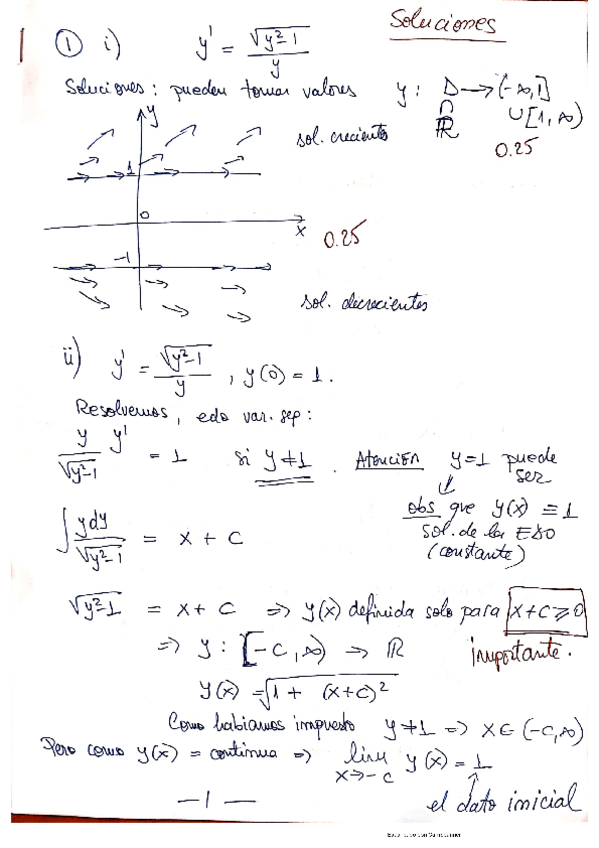 Soluciones
① i) y' = √(y²-1) / y
Soluciones: pueden tomar valores y: D → (-∞,1]
∩ ∪ [1,∞)
ℝ
0.25
y
sol. crecientes
1
0
x
0.25
-1
sol. decrecientes
ii) y' = √(y²-1) / y , y(0) = 1.
Resolvemos, edo var. sep:
y / √(y²-1) y' = 1 si y ≠ 1. Atención y=1 puede
ser
obs que y(x) ≡ 1
sol. de la EDO
(constante)
∫ y dy / √(y²-1) = x + C
√(y²-1) = x + C ⇒ y(x) definida solo para x+C ≥ 0
⇒ y: [-C, ∞) → ℝ importante.
y(x) = √(1 + (x+C)²)
Como habíamos impuesto y ≠ 1 ⇒ x ∈ (-C, ∞)
Pero como y(x) = continua ⇒ lim y(x) = 1
x→-C
el dato inicial
— 1 —